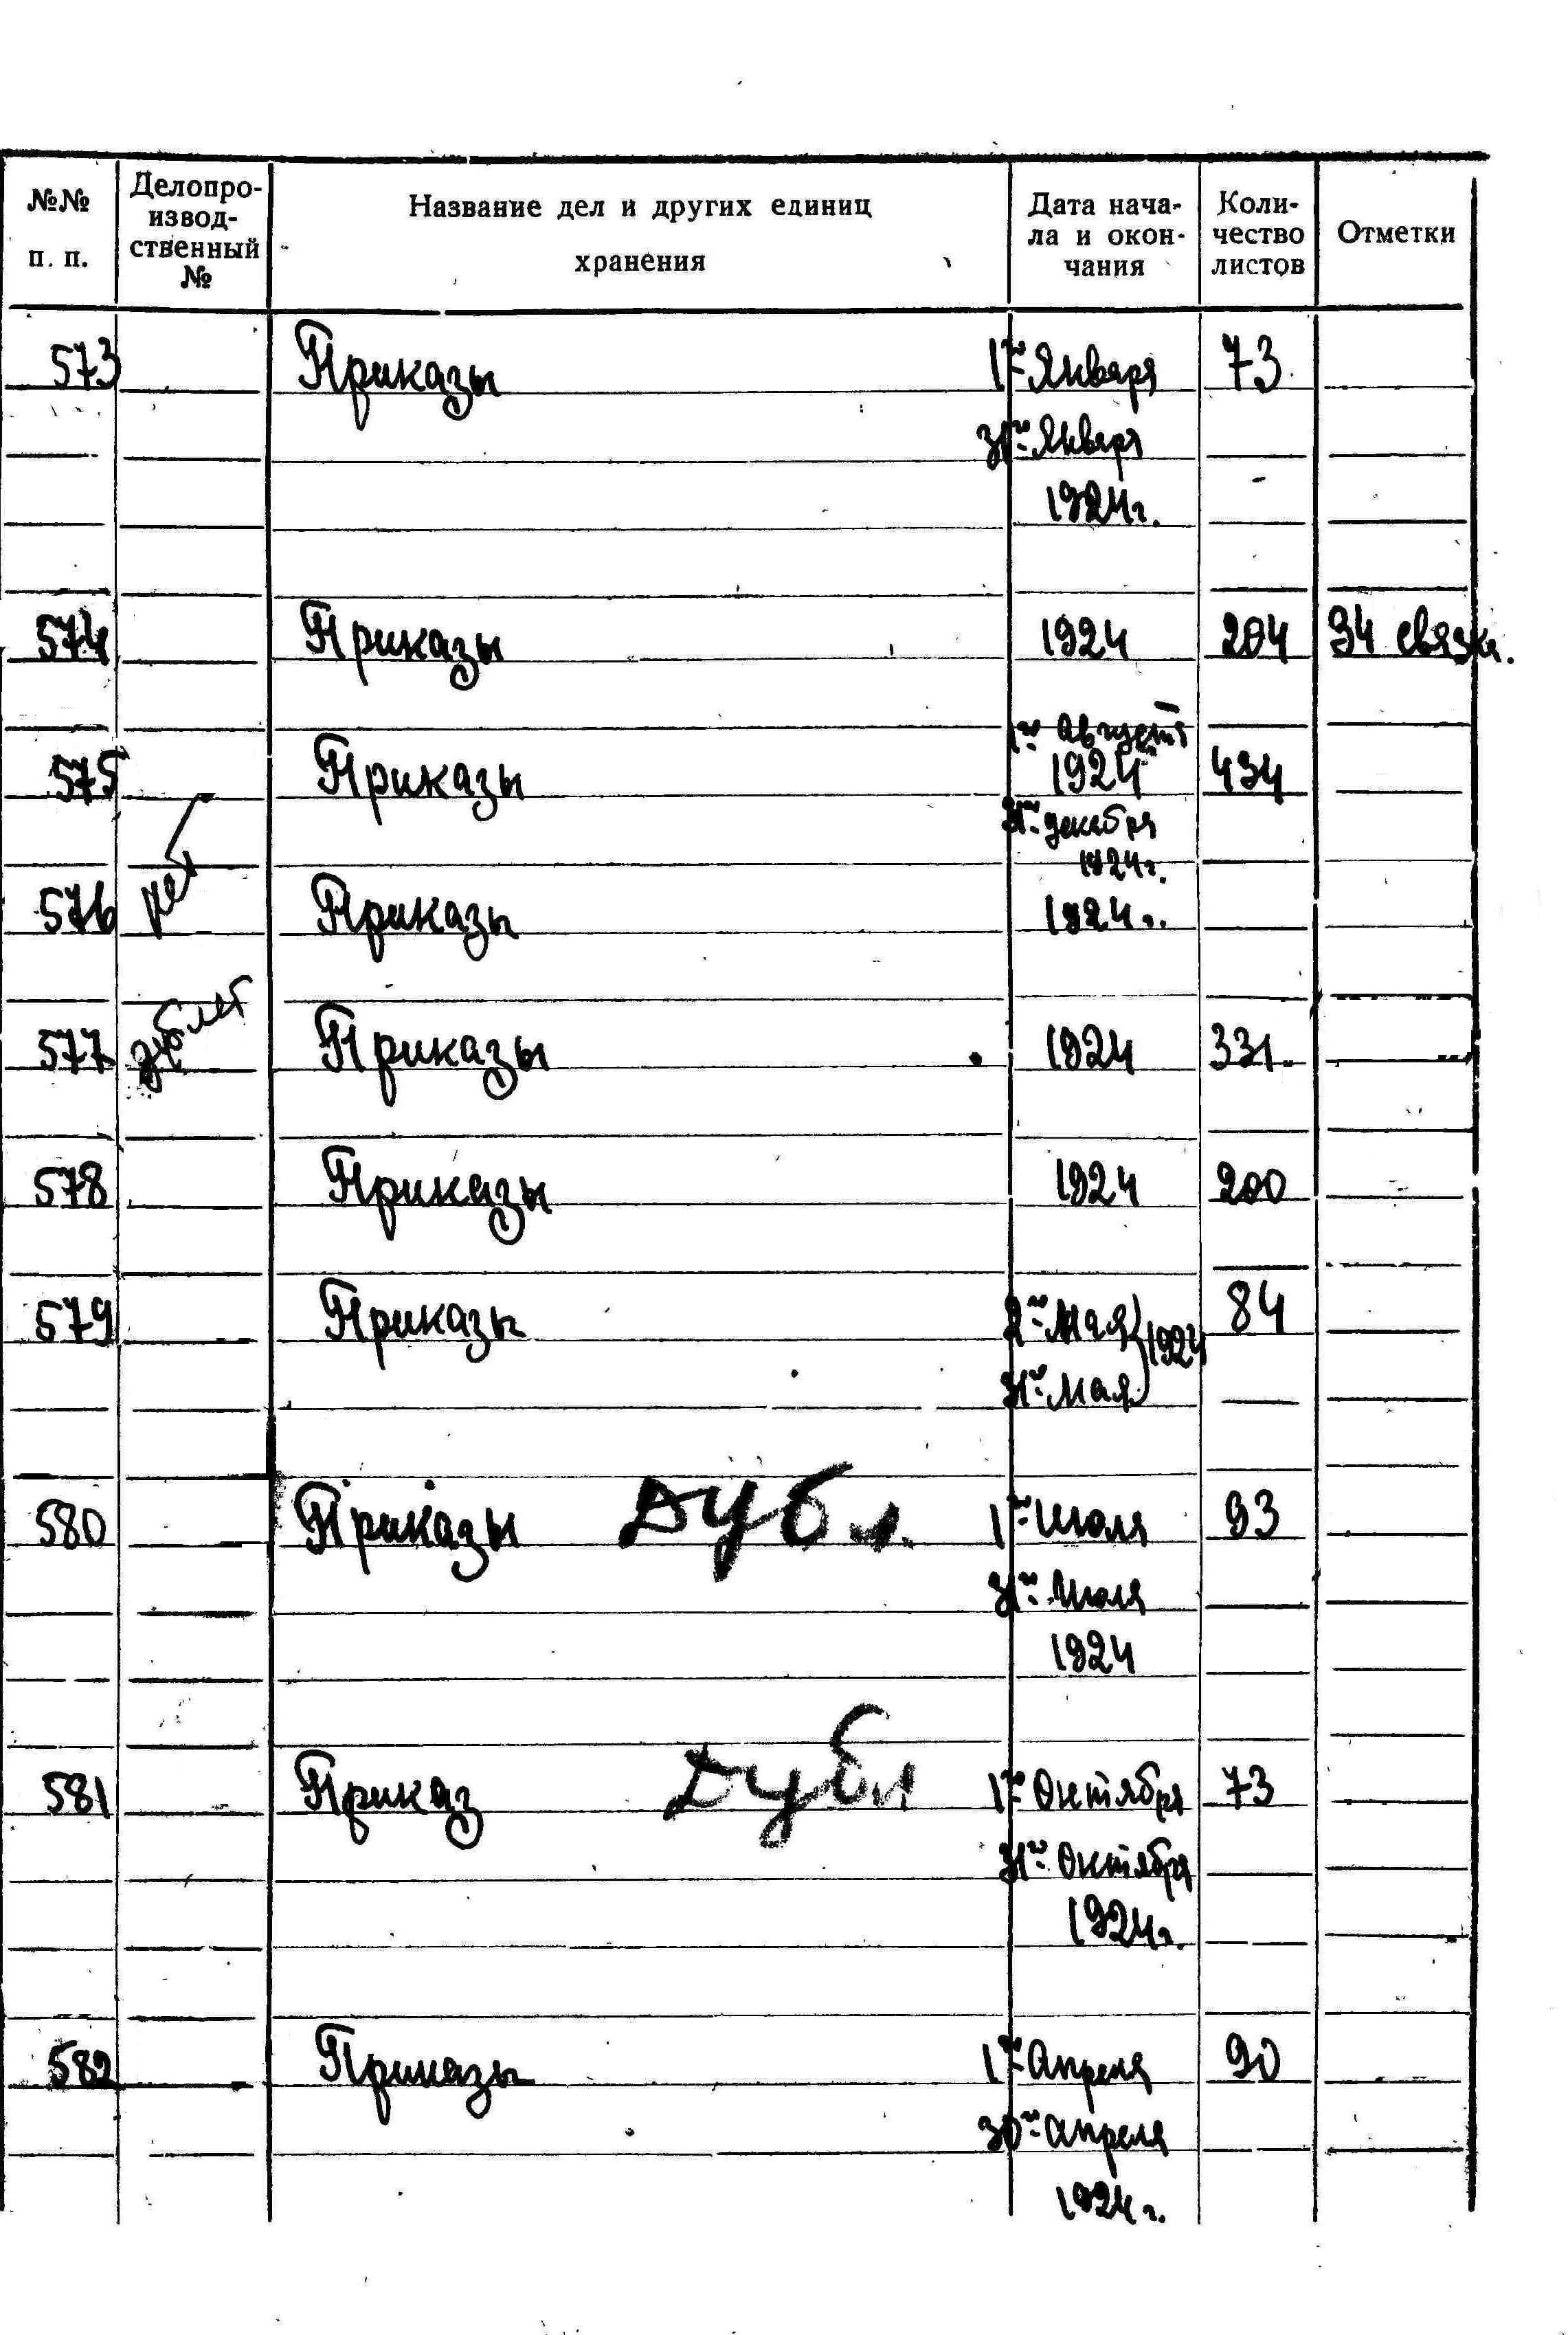 №№ п. п. Делопро-извод-ственный № Название дел и других единиц хранения Дата нача-ла и окон-чания Коли-чество листов Отметки
573 Приказы 1го Января 73
31го Января
1924г.
574 Приказы 1924 204 34 связки.
1го Август
575 Приказы 1924 434
31го декабря
1924г.
576 Приказы 1924г.
дублет
577 Приказы 1924 331
578 Приказы 1924 200
579 Приказы 2го Мая 1924 84
31го Мая
580 Приказы Дубл. 1го Июля 93
31го Июля
1924
581 Приказ Дубл 1го Октября 73
31го Октября
1924г.
582 Приказы 1го Апреля 90
30го Апреля
1924г.